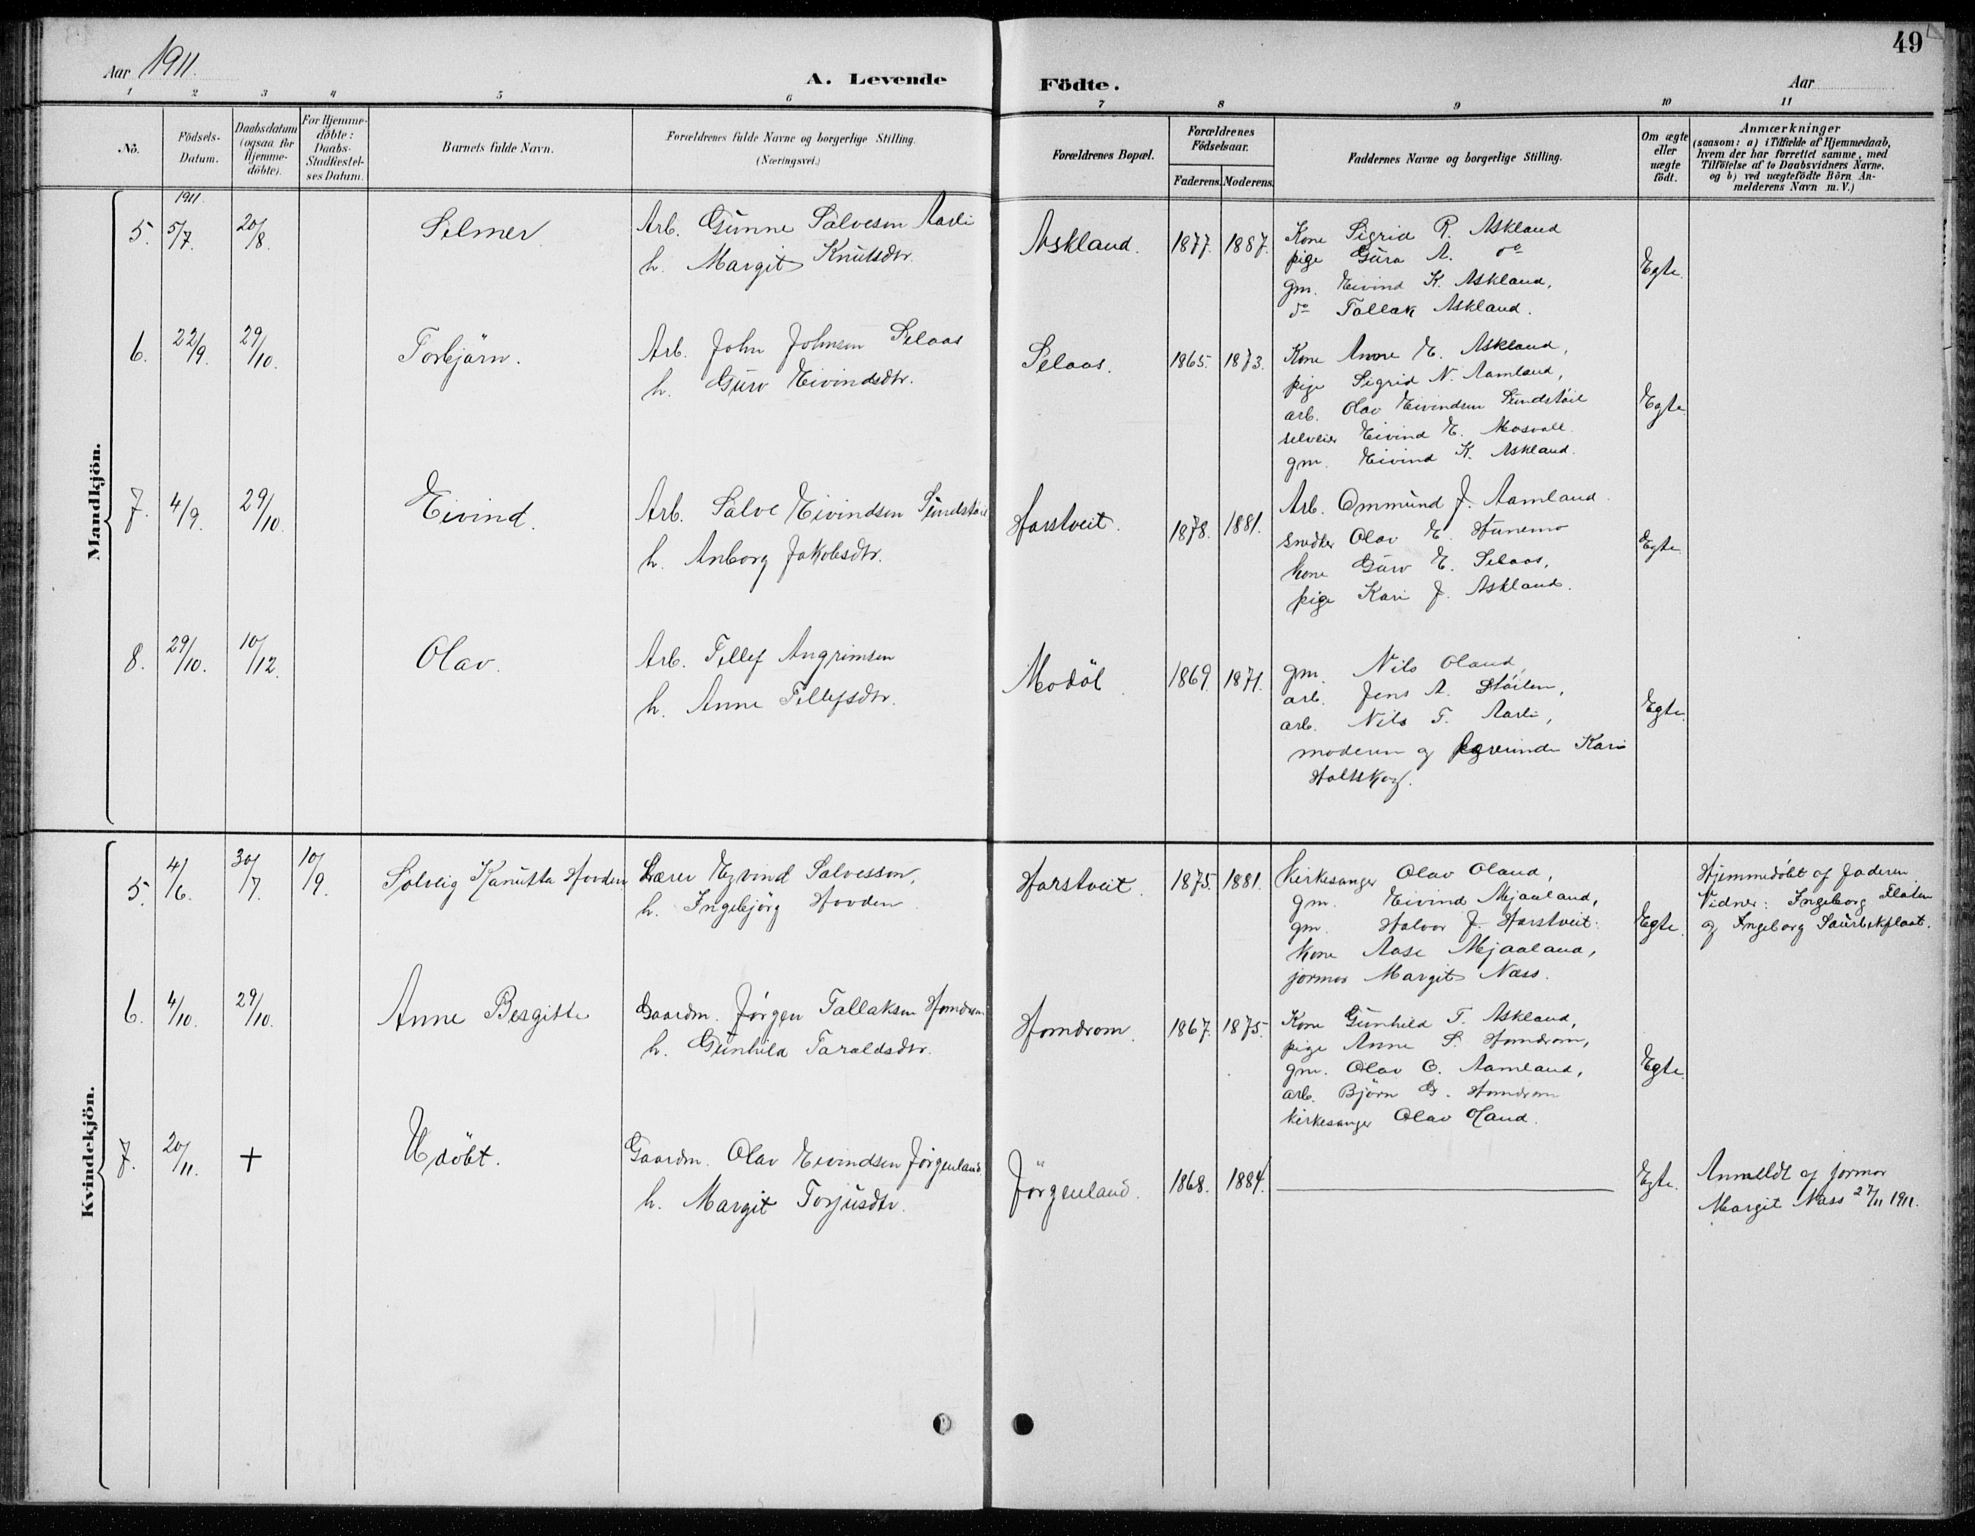 49
Aar 1911.
A. Levende Födte.
Aar
1 2 3 4 5 6 7 8 9 10 11
No.
Födsels-Datum.
Daabsdatum (ogsaa for Hjemme-döbte).
For Hjemme-döbte: Daabs-Stadfæstel-ses Datum.
Barnets fulde Navn.
Forældrenes fulde Navne og borgerlige Stilling. (Næringsvei.)
Forældrenes Bopæl.
Forældrenes Födselsaar.
Faderens. Moderens.
Faddernes Navne og borgerlige Stilling.
Om ægte eller uægte födt.
Anmærkninger
(saasom: a) i Tilfælde af Hjemmedaab, hvem der har forrettet samme, med Tilföielse af to Daabsvidners Navne. og b) ved uægtefödte Börn An-melderens Navn m. V.)
Mandkjön.
1911
5. 5/7. 20/8. Selmer. Arb. Gunne Salvesen Aarli
h. Margit Knutsdtr.
Askland. 1877. 1887.
Kone Sigrid R. Askland
pige Guro A. do
gm. Eivind K. Askland,
do Tallak Askland.
Egte.
6. 22/9. 29/10. Torbjörn. Arb. John Johnsen Selaas
h. Guro Eivindsdtr.
Selaas. 1865. 1873.
Kone Anne E. Askland,
pige Sigrid N. Aamland,
arb. Olav Eivindsen Sundstöil
selveier Eivind E. Mosvall.
gm. Eivind K. Askland.
Egte.
7. 4/9. 29/10. Eivind. Arb. Salve Eivindsen Sundstöil
h. Anborg Jakobsdtr.
Harstveit. 1878. 1881.
Arb. Ommund J. Aamland.
snedker Olav E. Hunemo
kone Guro E. Selaas,
pige Kari J. Askland.
Egte
8. 29/10. 10/12. Olav. Arb. Tellef Angrimsen
h. Anne Tellefsdtr.
Modöl. 1869. 1871.
gm. Nils Oland,
arb. Jens A. Stöilen,
arb. Nils T. Aarli,
moderen og Kari
Holtskog.
Egte.
Kvindekjön.
5. 4/6. 30/7. 10/9. Solveig Kanutta Hovden Lærer Eyvind Salvesson,
h. Ingebjörg Hovden
Harstveit. 1875. 1881.
Kirkesanger Olav Oland,
gm. Eivind Mjaaland,
gm. Halvor J. Harstveit.
kone Aase Mjaaland,
jormor Margit Næss.
Egte.
Hjemmedöbt af faderen
Vidner: Ingeborg Flaten
og Ingeborg Saurbekflaat.
6. 4/10. 29/10. Anne Bergitte Gaardm. Jörgen Tallaksen Homdrom
h. Gunhild Taraldsdtr.
Homdrom. 1867. 1875.
Kone Gunhild T. Askland,
pige Anne S. Homdrom,
gm. Olav O. Aamland,
arb. Björn G. Homdrom
kirkesanger Olav Oland.
Egte.
7. 20/11. + Udöbt. Gaardm. Olav Eivindsen Jörgenland
h. Margit Torjusdtr.
Jörgenland. 1868. 1884.
Egte.
Anmeldt af jormor
Margit Næss 27/11 1911.